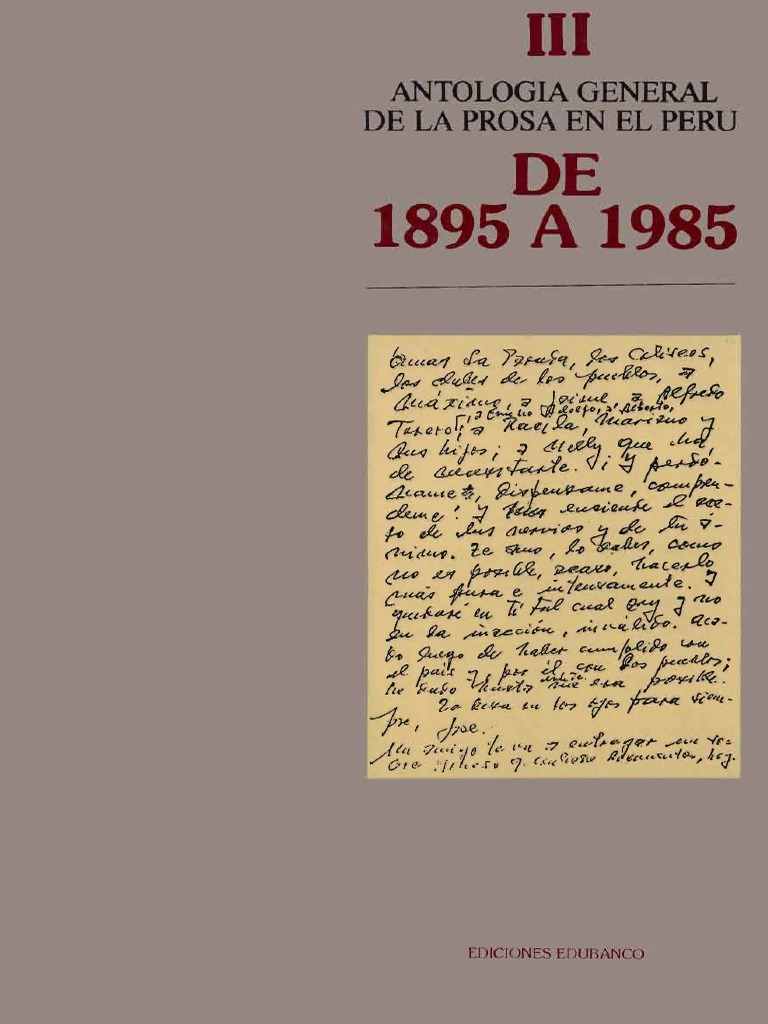 III
ANTOLOGIA GENERAL
DE LA PROSA EN EL PERU
DE
1895 A 1985
a La Parada, los Coliseos,
los clubes de los pueblos, a
Máximo, a Jaime, a Alfredo
Torero, a Emilio Adolfo, a Alberto,
a Racila, Mariano y
sus hijos; a Nelly que ha
de necesitarte. ¡Y perdó-
name, dispensame, compren-
deme! Y enciende el
de tus nervios y de tu á-
nimo. Te amo, lo sabes, como
no es posible, acaso, hacerlo
más pura e intensamente. Y
quedaré en ti tal cual soy y no
en la inacción, inválido. Aca-
bo luego de haber cumplido con
el país y, por él, con los pueblos;
he sido hasta era posible.
Te besa en los ojos para siem-
pre, José.
Un amigo te va a entregar un so-
bre grueso q. contiene documentos, hoy.
EDICIONES EDUBANCO